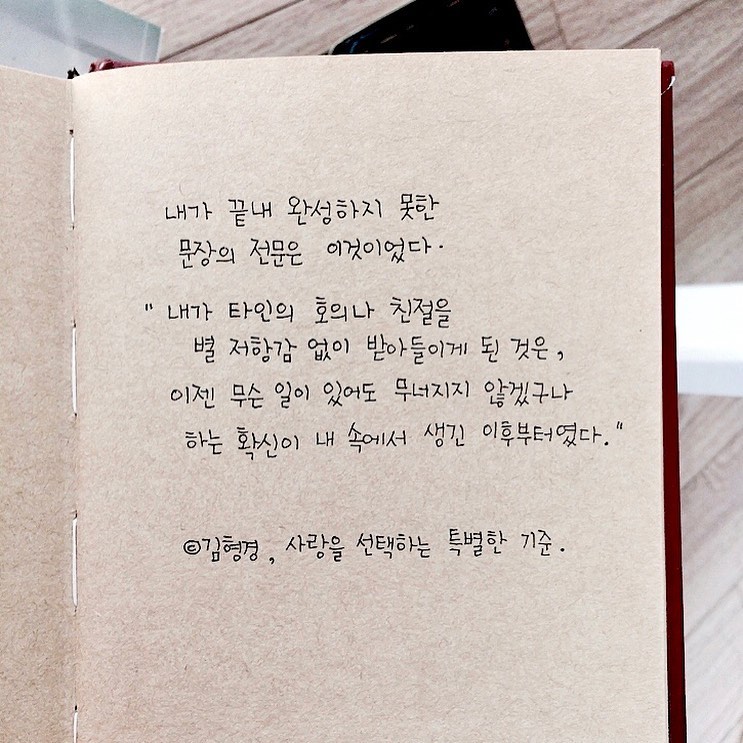 내가 끝내 완성하지 못한
문장의 전문은 이것이었다.
" 내가 타인의 호의나 친절을
별 저항감 없이 받아들이게 된 것은,
이젠 무슨 일이 있어도 무너지지 않겠구나
하는 확신이 내 속에서 생긴 이후부터였다."
©김형경, 사랑을 선택하는 특별한 기준.